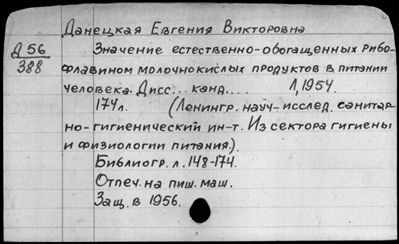 Данецкая Евгения Викторовна
Д 56
388
Значение естественно-обогащенных рибо-
флавином молочнокислых продуктов в питании
человека. Дисс... канд.... Л, 1954.
174л. (Ленингр. науч-исслед. санитар
но-гигиенический ин-т. Из сектора гигиены
и физиологии питания.).
Библиогр. л. 148-174.
Отпеч. на пиш. маш.
Защ. в 1956.